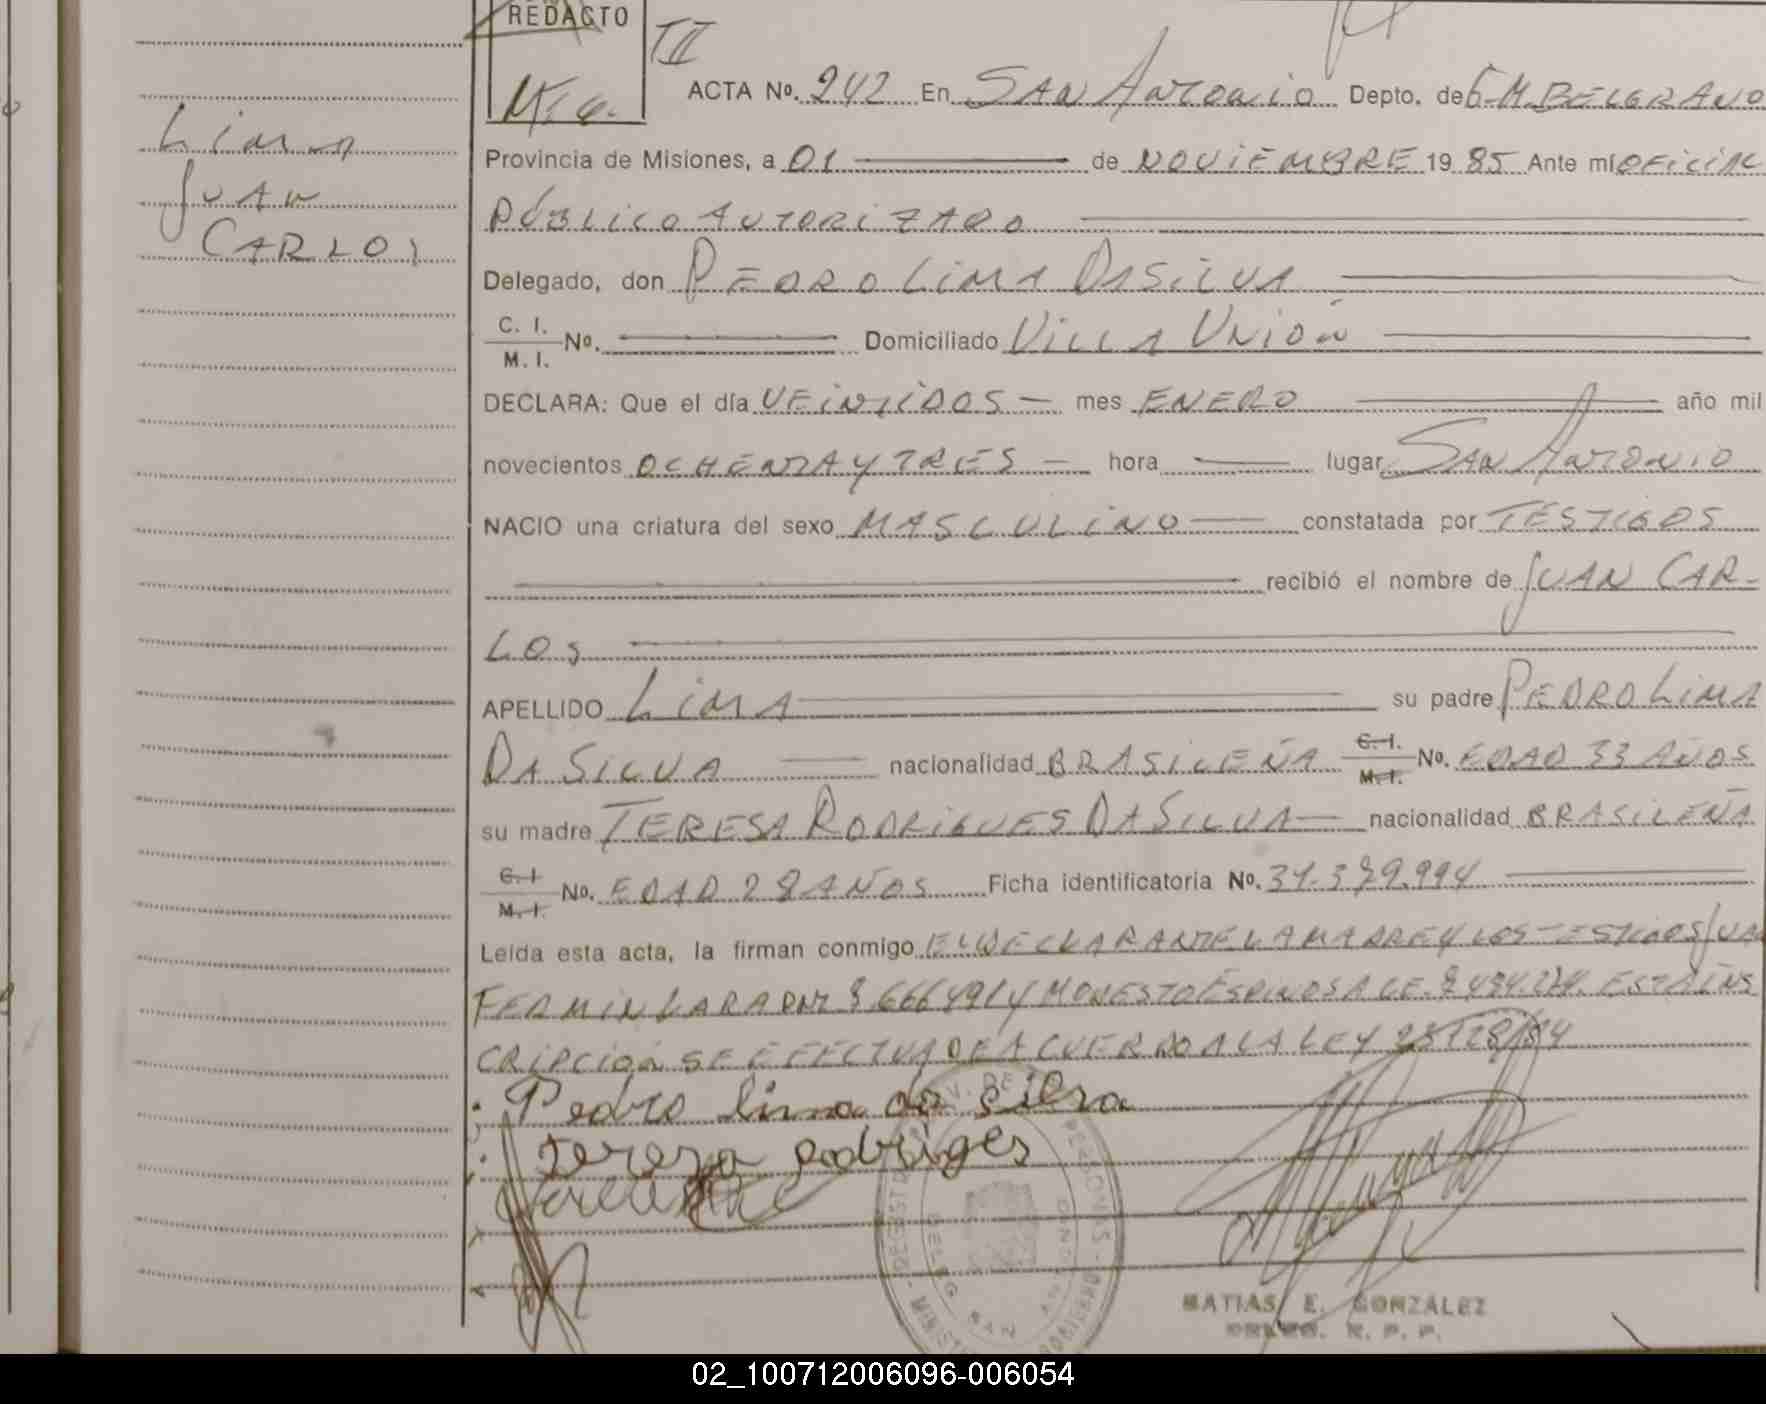 REDACTO
II
ACTA Nº. 242 En SAN ANTONIO Depto. de G. M. BELGRANO
Lima
JUAN
CARLOS
Provincia de Misiones, a 01 de NOVIEMBRE 19 85 Ante mí OFICIAL
PÚBLICO AUTORIZADO
Delegado, don PEDRO LIMA DA SILVA
C. I.
M. I. Nº. Domiciliado VILLA UNIÓN
DECLARA: Que el día VEINTIDOS mes ENERO año mil
novecientos OCHENTA Y TRES hora lugar SAN ANTONIO
NACIO una criatura del sexo MASCULINO constatada por TESTIGOS
recibió el nombre de JUAN CAR-
LOS
APELLIDO LIMA su padre PEDRO LIMA
DA SILVA nacionalidad BRASILEÑA C. I. M. I. Nº. EDAD 33 AÑOS
su madre TERESA RODRIGUES DA SILVA nacionalidad BRASILEÑA
C. I M. I. Nº. EDAD 28 AÑOS Ficha identificatoria Nº. 31.379.994
Leída esta acta, la firman conmigo EL DECLARANTE LA MADRE Y LOS TESTIGOS JUAN
FERMIN LARA DNI 8.666.491 Y MODESTO ESPINOSA C.E. ESTA INS
CRIPCIÓN SE EFECTUA DE ACUERDO A LA LEY 23128/84
Pedro lima da silva
tereza rodriges
MATIAS E. GONZALEZ
R. P. P.
02_100712006096-006054